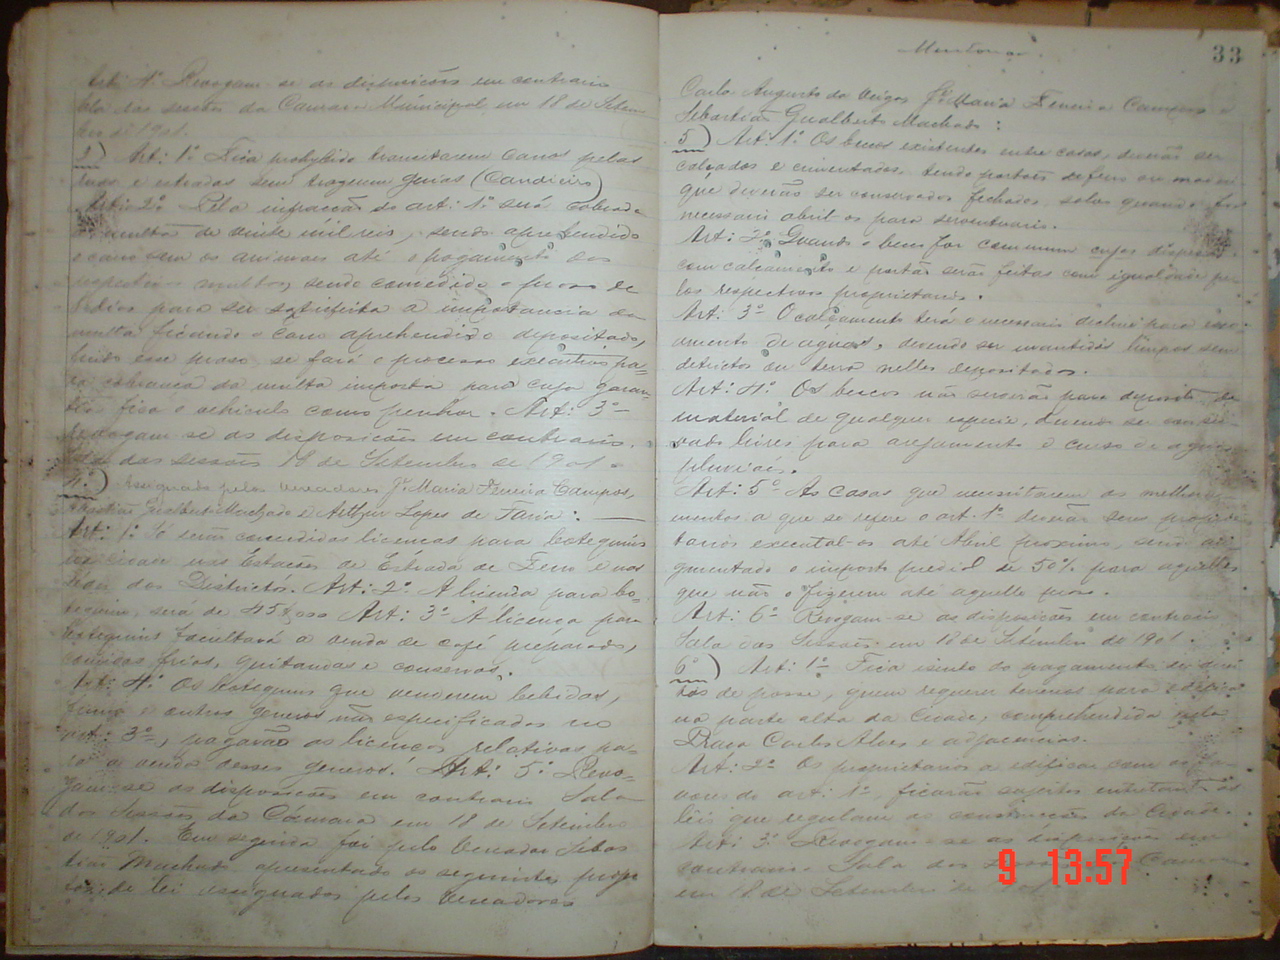 Art: 4º Revogam-se as disposições em contrario
Sala das sessões da Camara Municipal, em 18 de Setem
bro de 1901.
Art: 1º Fica prohybido transitarem carros pelas
ruas e estradas sem trazerem guias (Candieiro)
Art: 2º Pela infracção do art: 1º será cobrada
a multa de vinte mil reis, sendo aprehendido
o carro com os animaes até o pagamento das
respectivas multas, sendo concedido o praso de
dias para ser satisfeita a importancia da
multa ficando o carro aprehendido depositado,
findo esse praso, se fará o processo executivo pa-
ra cobrança da multa imposta para cuja garan-
tia fica o vehiculo como penhor. Art: 3º
Revogam-se as disposições em contrario.
Sala das sessões 18 de Setembro de 1901.
4º) Assignado pelos vereadores Jº Maria Ferreira Campos,
Sebastião Gualberto Machado e Arthur Lopes de Faria:
Art: 1º Só serão concedidas licenças para botequins
na cidade nas Estações de Estrada de Ferro e nas
sédes dos Districtos. Art: 2º A licença para bo-
tequim, será de 45$000 Art: 3º A licença para
botequins facultará a venda de café preparado,
comidas frias, quitandas e conservas.
Art: 4º Os botequins que venderem bebidas,
fumo e outros generos não especificados no
Art: 3º, pagarão as licenças relativas pa-
ra a venda desses generos. Art: 5º Revo-
gam-se as disposições em contrario Sala
das Sessões da Camara em 18 de Setembro
de 1901. Em seguida foi pelo Vereador Sebas
tião Machado apresentado os seguintes proje
tos de lei assignados pelos Vereadores
33
Carlo Augusto da Veiga, Jº Maria Ferreira Campos e
Sebastião Gualberto Machado:
5º) Art: 1º Os becos existentes entre casas, deverão ser
calçados e cimentados, tendo portões de ferro ou madei
que deverão ser conservados fechados, salvo quando for
necessario abril-os para serventuario.
Art: 2º Quando o beco for commum cujas despesas
com calçamento e portão serão feitas com igualdade pe
los respectivos proprietarios.
Art: 3º O calçamento terá o necessario declive para esco
amento de aguas, devendo ser mantidos limpos sem
detrictos ou terra nelles depositados.
Art: 4º Os becos não servirão para deposito de
material de qualquer especie, devendo ser conser-
vados livres para arejamento e curso de aguas
pluviais.
Art: 5º As casas que necessitarem os melhora-
mentos a que se refere o art. 1º deverão seus proprie
tarios executal-os até Abril proximo, sendo au-
gmentado o imposto predial de 50% para aquelles
que não o fizerem até aquelle praso.
Art: 6º Revogam-se as disposições em contrario
Sala das Sessões em 18 de Setembro de 1901.
6º) Art: 1º Fica isento do pagamento de direi
tos de posse, quem requerer terrenos para edificar
na parte alta da Cidade, comprehendida pela
Praça Carlos Alves e adjacencias.
Art: 2º Os proprietarios a edificar com os fa-
vores do art: 1º, ficarão sujeitos entretanto as
leis que regulam as construcções da Cidade.
Art: 3º Revogam-se as disposições em
contrario Sala das Sessões da Camara
em 18 de Setembro de 1901
9 13:57